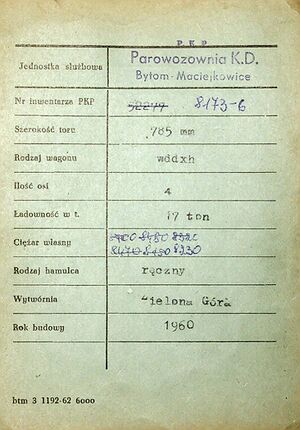 P K P
Jednostka służbowa Parowozownia K.D.
Bytom-Maciejkowice
Nr inwentarza PKP 8173-6
Szerokość toru 785 mm
Rodzaj wagonu wddxh
Ilość osi 4
Ładowność w t. 17 ton
Ciężar własny
8230
Rodzaj hamulca ręczny
Wytwórnia Zielona Góra
Rok budowy 1960
btm 3 1192-62 6000